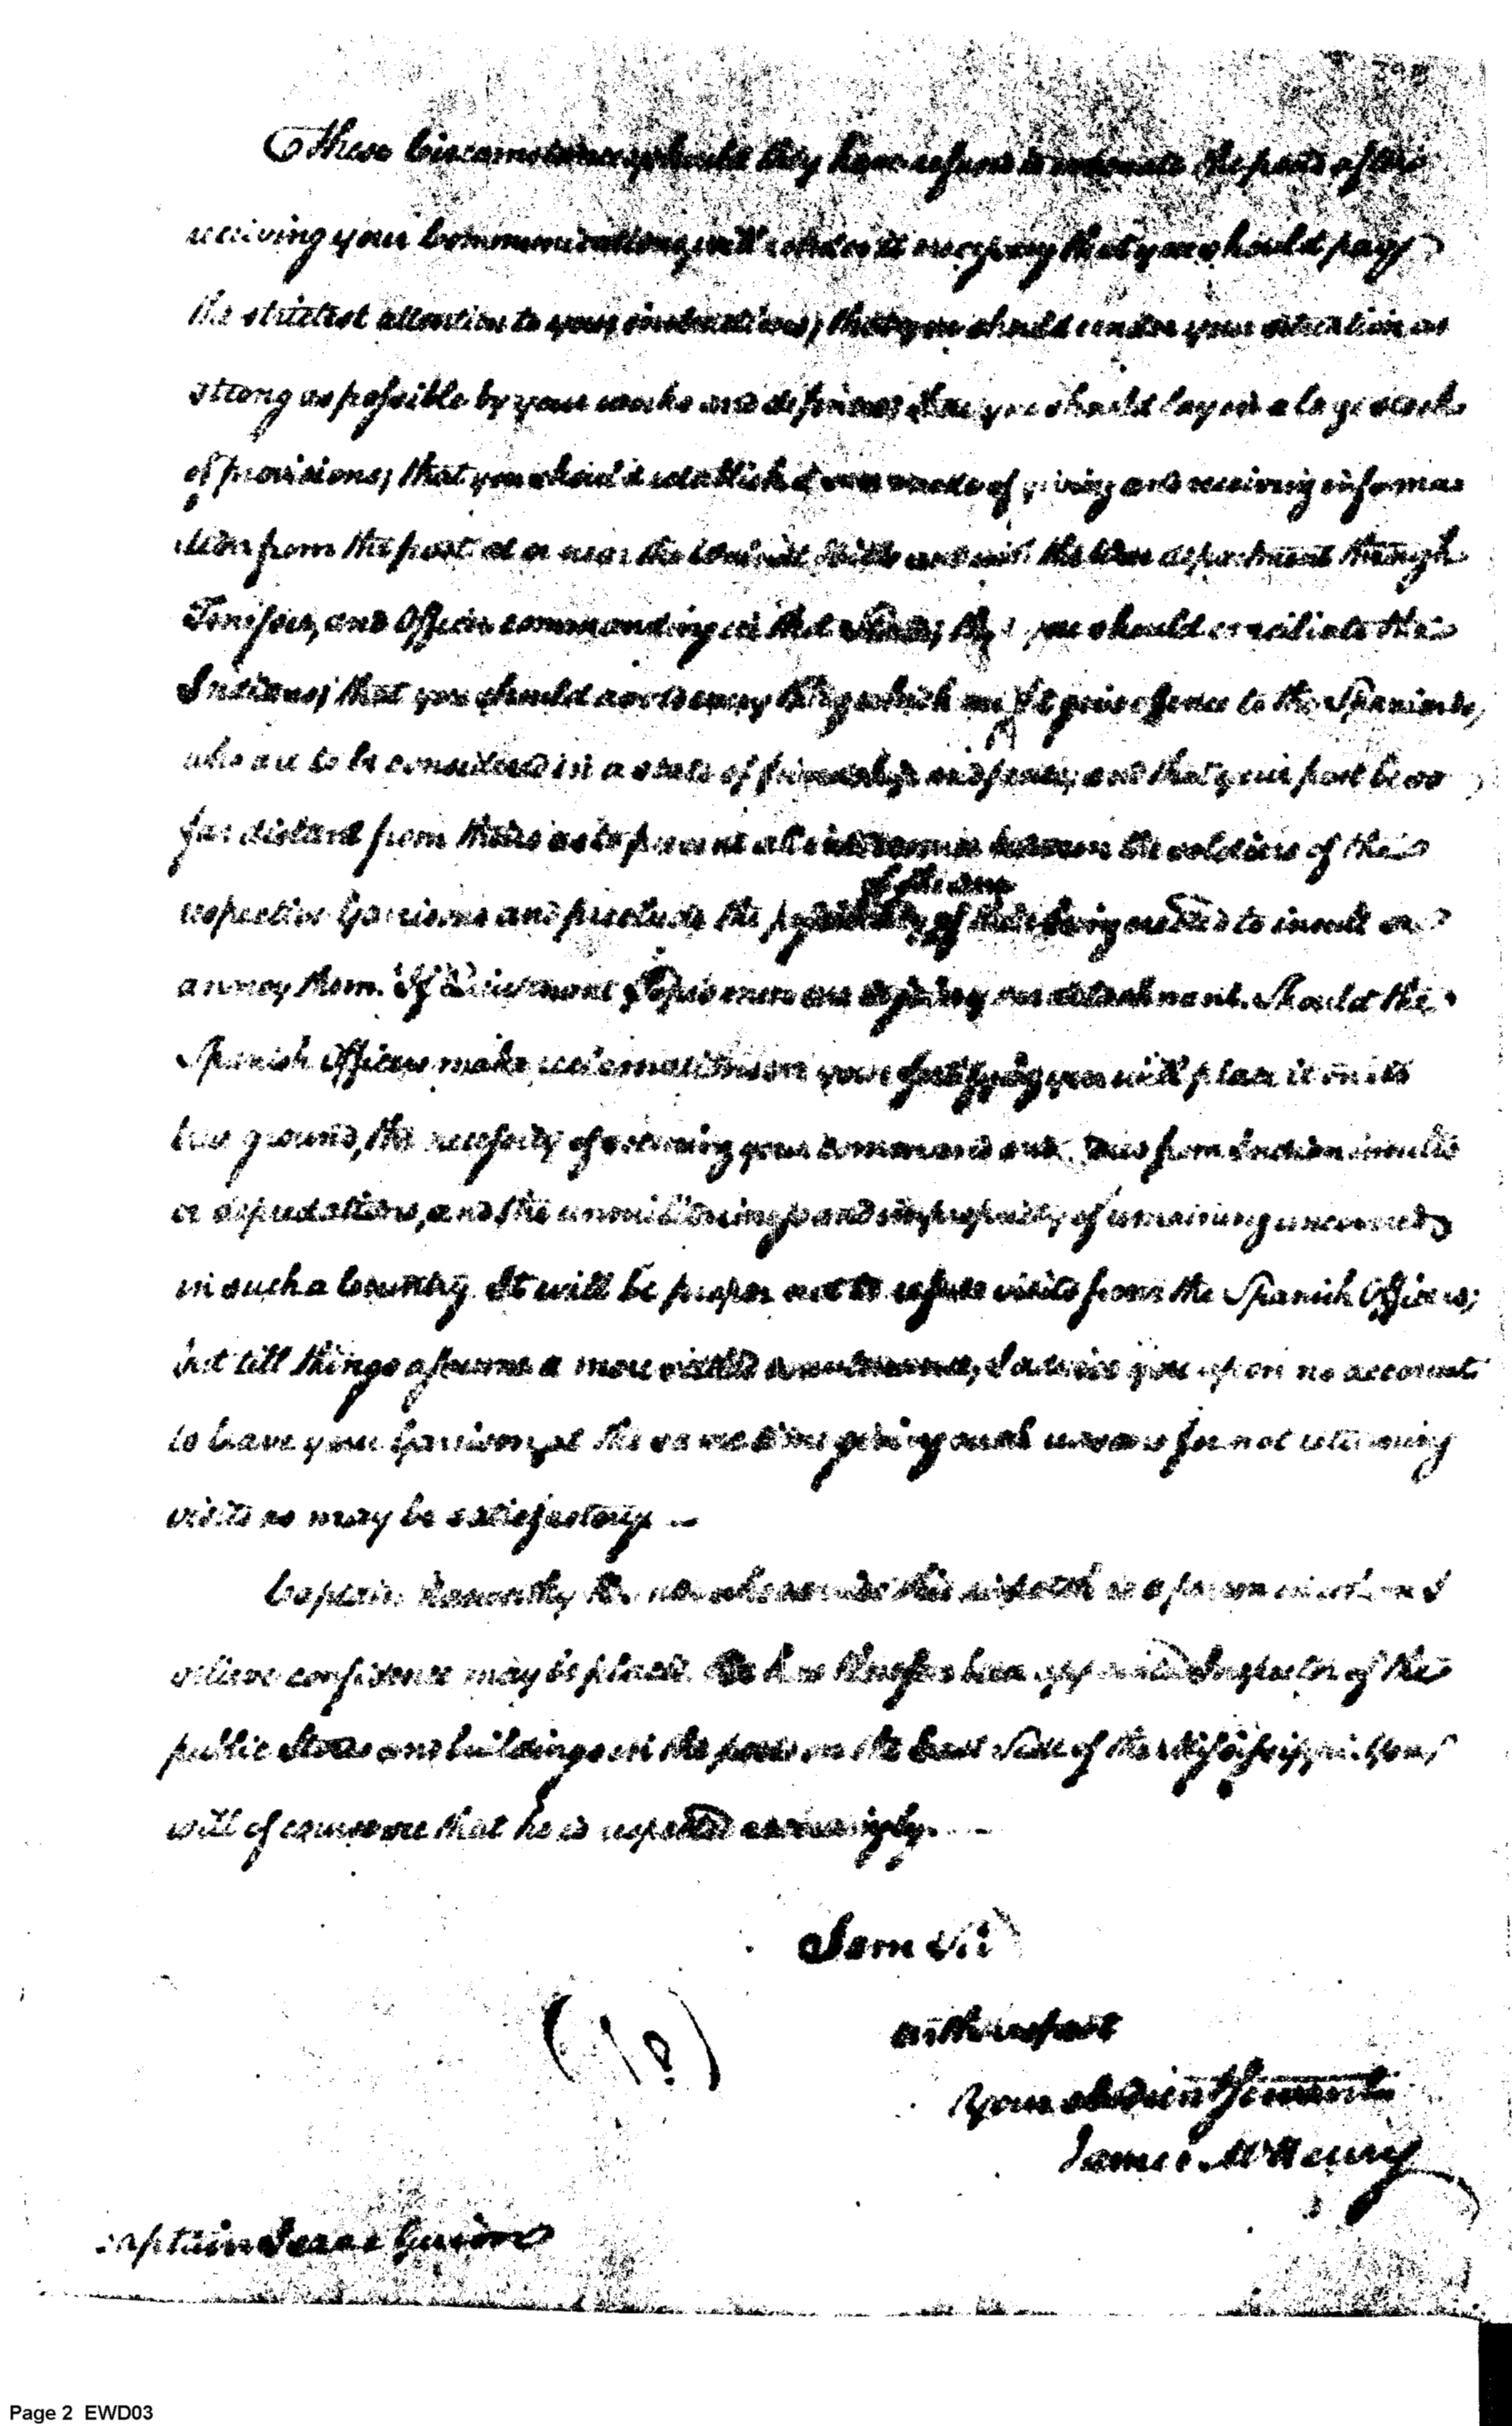 These Circumstances should they have refused to evacuate the posts after
receiving your Communications, will render it necessary that you should pay
the strictest attention to your instructions; that you should render your situation as
strong as possible by your works and defences; that you should lay in a large stock
of provisions; that you should establish a mode of giving and receiving informa
tion from the post at or near the and with the War department through
Tenissee, and Officer commanding in that State; that you should conciliate the
Indians; that you should avoid every thing which might give offence to the Spaniards,
who are to be considered in a state of friendship and peace; and that your post be so
far distant from theirs as to prevent all intercourse between the soldiers of the
respective Garrisons and preclude the possibility of their being to insult or
annoy them. If men are your detachment. Should the
Spanish Officers make reclamations on your fortifying you will place it on its
true ground, the necessity of securing your command and from Indian insults
or depredations, and the unmilitariness and impropriety of remaining uncovered
in such a Country. It will be proper not to refuse visits from the Spanish Officers;
but till things assume a more settled countenance, I advise you upon no account
to leave your Garrison, at the same time giving such reasons for not returning
visits as may be satisfactory —
Captain who this is a person in whom I
believe confidence may be placed. He has therefore been appointed Inspector of the
public Stores and buildings in the posts on the East Side of the Mississippi. You
will of course see that he is respected accordingly. —
I am Sir
with respect
Your obedient servant
James McHenry
Captain Isaac Guion
Page 2 EWD03